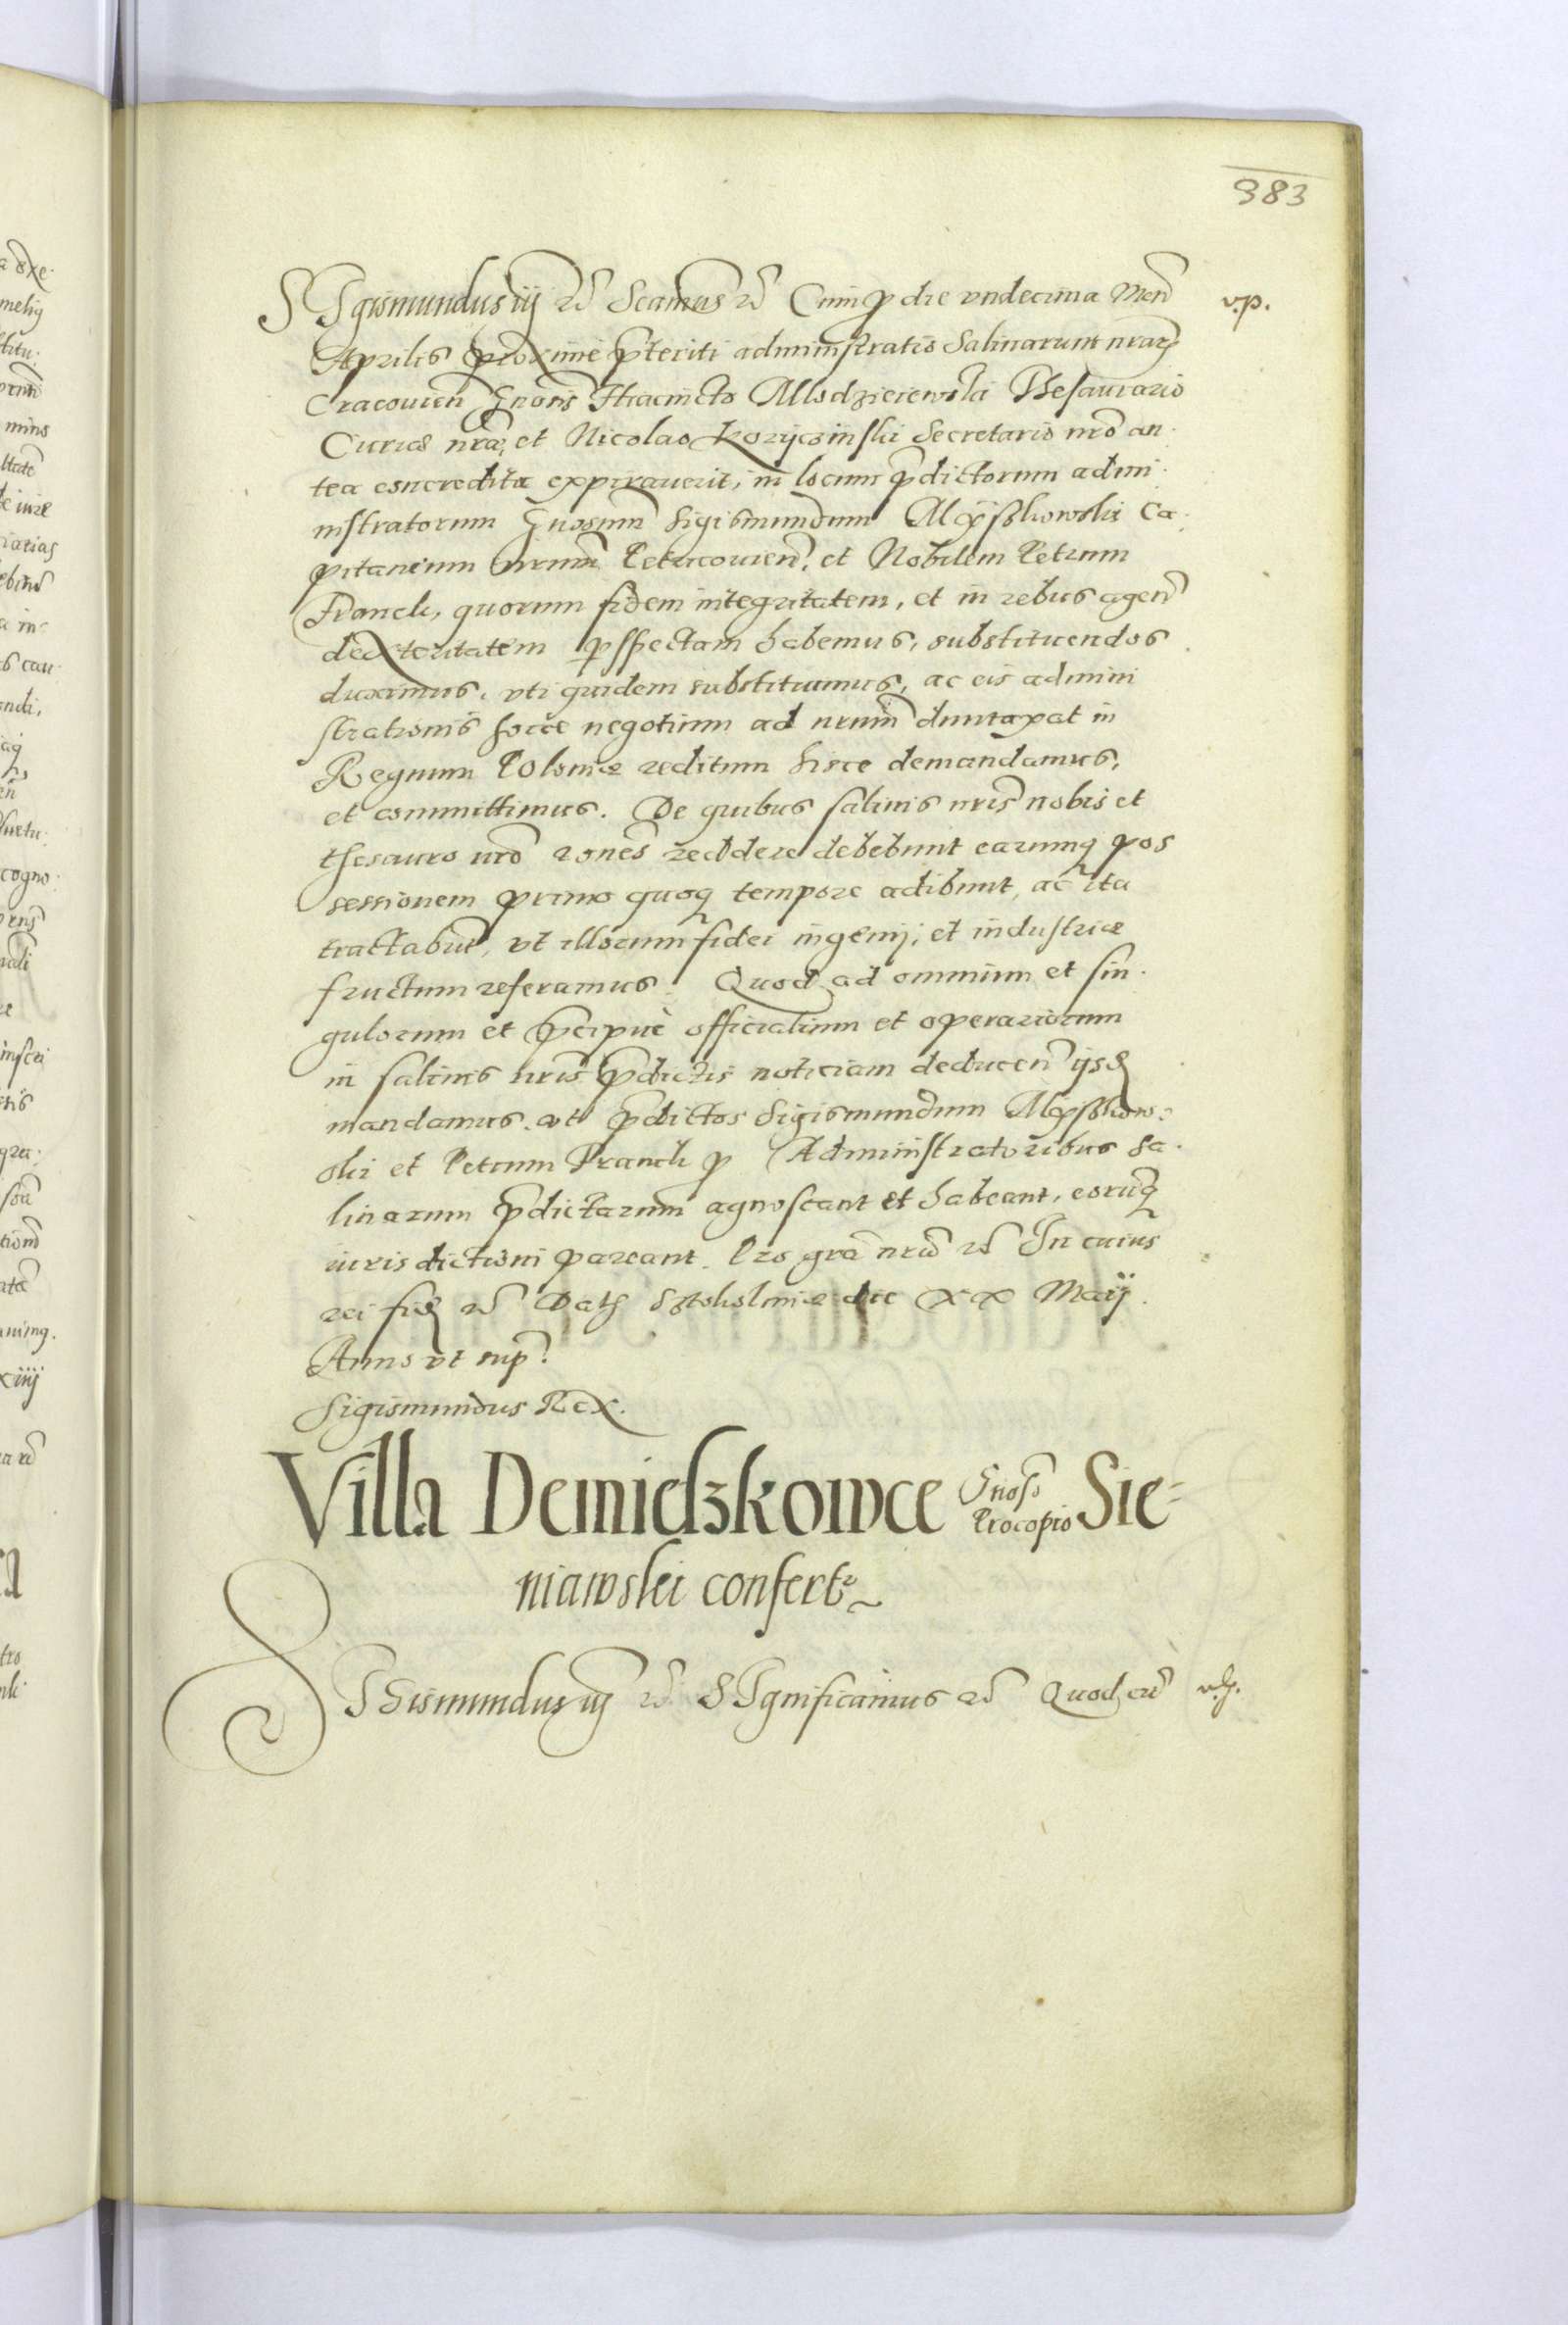 383
SIgismundus iij etc̃ Scamus etc̃ Cum p̱ die vndecima Men̄
v.p.
Aprilis proxime p̄teriti administratio Salinarum nrar̄
Cracouien̄ Gn̄osis Hiacincto Mlodzieiewski Thesaurario
Curiæ nr̄æ, et Nicolao Koryczinski Secretario nrō an-
tea concredita expirauerit, in locum p̄dictorum admi-
nistratorum Gn̄osum Sigismundum Myschkowski Ca-
pitaneum nrum̄ Petricouien̄, et Nobilem Petrum
Franck, quorum fidem integritatem, et in rebus agen̄
dexteritatem p̱spectam habemus, substituendos
duximus, vti quidem substituimus, ac eis admini
strationis hocce negotium ad nrum̄ duntaxat in
Regnum Poloniæ reditum hisce demandamus,
et committimus. De quibus salinis nrīs nobis et
thesauro nrō rōnes̄ reddere debebunt earumq̨ pos
sessionem primo quoq̨ tempore adibunt, ac ita
tractabun̄t, vt illorum fidei ingenij, et industriæ
fructum referamus. Quod ad omnium et sin-
gulorum et p̄cipuè officialium et operariorum
in salinis nrīs p̄dictis noticiam deducen̄ ijsd̄
mandamus. vti p̄dictos Sigismundum Myschkow-
ski et Petrum Franck p̱ Administratoribus Sa-
linarum p̄dictarum agnoscant et habeant, eorūq̨
iurisdictioni pareant. Pro grā nrā etc̃ In cuius
rei fid̄ etc̃ Dat̄ Stokolmiæ die XX Maij
Anno vt sup̄.
Sigismundus Rex.
Villa Demidzkowce Gnoso̅ Procopio Sie-
niawski confert̃
SIGismundus iij etc̃ SIgnificamus etc̃ Quod cū